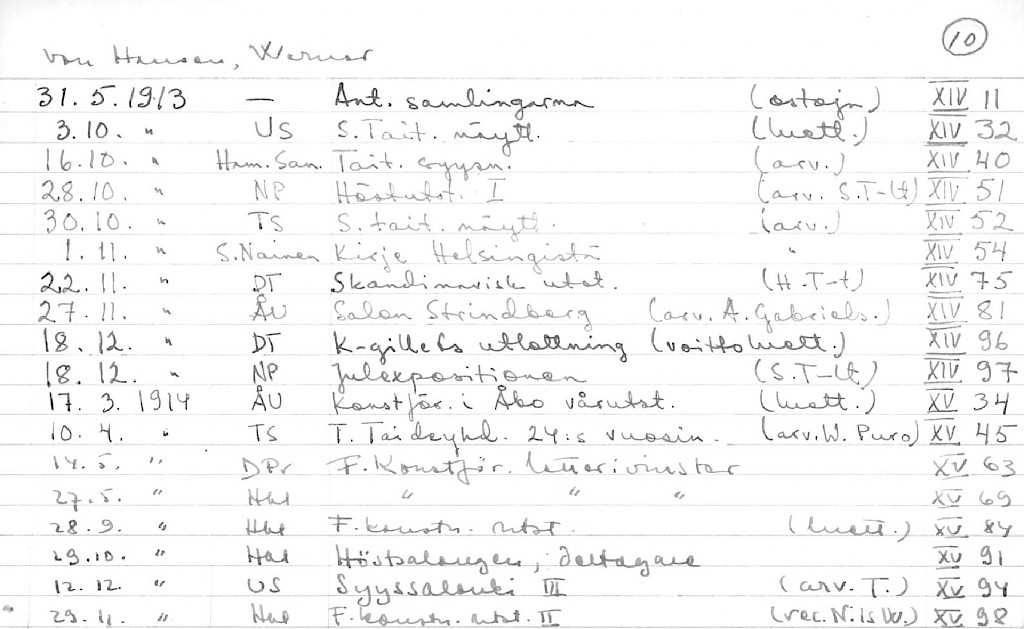 10
von Hausen, Werner
31. 5. 1913 — Ant. samlingarna (ostajn) XIV 11
3.10. " US S. Tait. näytt. (luett.) XIV 32
16.10. " Ham. San. Tait. syysn. (arv.) XIV 40
28.10. " NP Höstutst. I (arv. S.T-lt) XIV 51
30.10. " TS S. tait. näytt. (arv.) XIV 52
1. 11. " S. Nainen Kirje Helsingistä " XIV 54
22. 11. " DT Skandinavisk utst. (H.T-t) XIV 75
27. 11. " ÅU Salon Strindberg (arv. A. Gabriels.) XIV 81
18. 12. " DT K-gillets utlottning (voittoluett.) XIV 96
18. 12. " NP Julexpositionen (S.T-lt.) XIV 97
17. 3. 1914 ÅU Konstför. i Åbo vårutst. (luett.) XV 34
10. 4. " TS T. Taideyhd. 24:s vuosin. (arv. W. Puro) XV 45
14. 5. " DPr F. Konstför. lotterivinster XV 63
27. 5. " Hbl " " " XV 69
28. 9. " Hbl F. konstn. utst. (luett.) XV 84
29.10. " Hbl Höstsalongen, deltagare XV 91
12. 12. " US Syyssalonki III (arv. T.) XV 94
29. 11. " Hbl F. konstn. utst. II (rec. N. is W.) XV 98